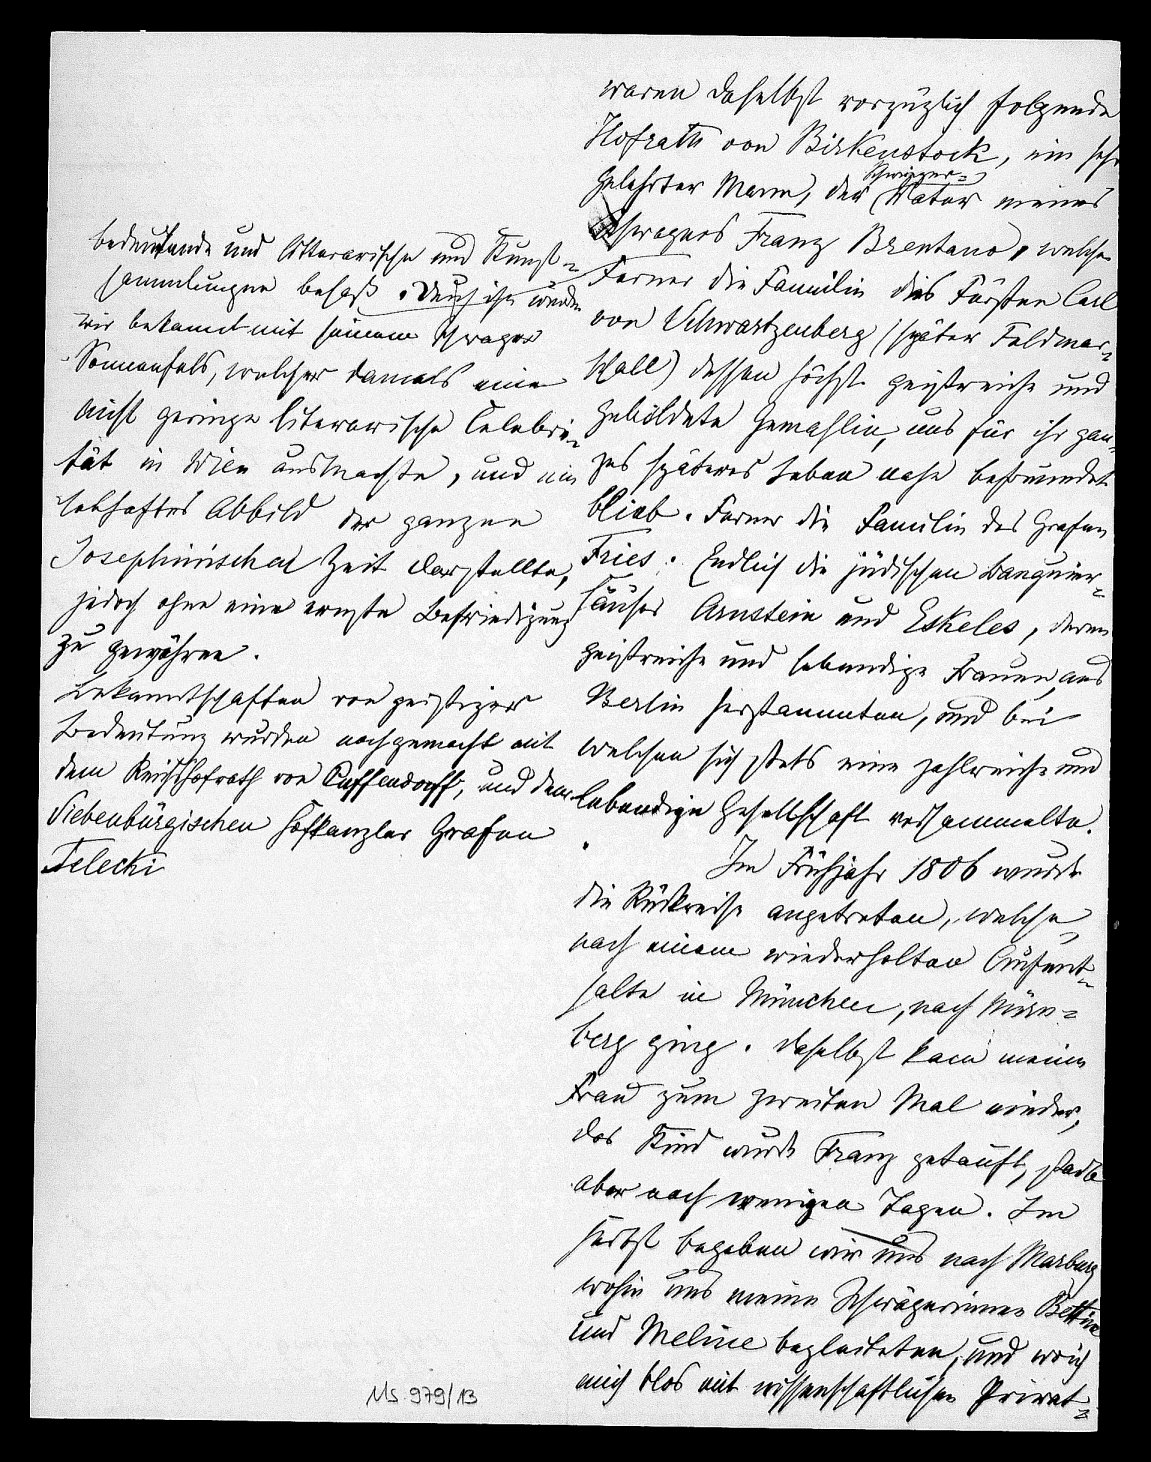 waren daselbst vorzüglich folgende
Hofrath von Birkenstock, ein sehr
gelehrter Mann, der Schwieger=
Vater meines
Schwagers Franz Brentano, welcher
Ferner die Familie des Fürsten Carl
von Schwartzenberg (später Feldmar=
schall) dessen höchst geistreiche und
gebildete Gemahlin, uns für ihr gan=
zes späteres Leben nahe befreundet
blieb. Ferner die Familie des Grafen
Fries. Endlich die jüdischen Banquier=
häuser Arnstein und Eskeles, deren
geistreiche und lebendige Frauen, aus
Berlin herstammten, und bei
welchen sich stets eine zahlreiche und
lebendige Gesellschaft versammelte.
Im Frühjahr 1806 wurde
die Rückreise angetreten, welche,
nach einem wiederholten Aufent=
halte in München, nach Nürn=
berg ging. Daselbst kam meine
Frau zum zweiten Mal nieder,
das Kind wurde Franz getauft, starb
aber nach wenigen Tagen. Im
Herbst begaben wir uns nach Marburg
wohin uns meine Schwägerinnen Bettine
und Meline begleiteten, und wo ich
mich blos mit wissenschaftlichen Privat=
bedeutende und litterarische und Kunst=
sammlungen besaß. Durch ihn wurden
wir bekannt mit seinem Schwager
Sonnenfels, welcher damals eine
nicht geringe literarische Celebri=
tät in Wien ausmachte, und ein
lebhaftes Abbild der ganzen
Josephinischen Zeit darstellte,
jedoch ohne eine ernste Befriedigung
zu gewähren.
Bekanntschaften von geistiger
Bedeutung wurden noch gemacht mit
dem Reichshofrath von Puffendorff, und dem
Siebenbürgischen Hofkanzler Grafen
Telecki
Ms 979/13